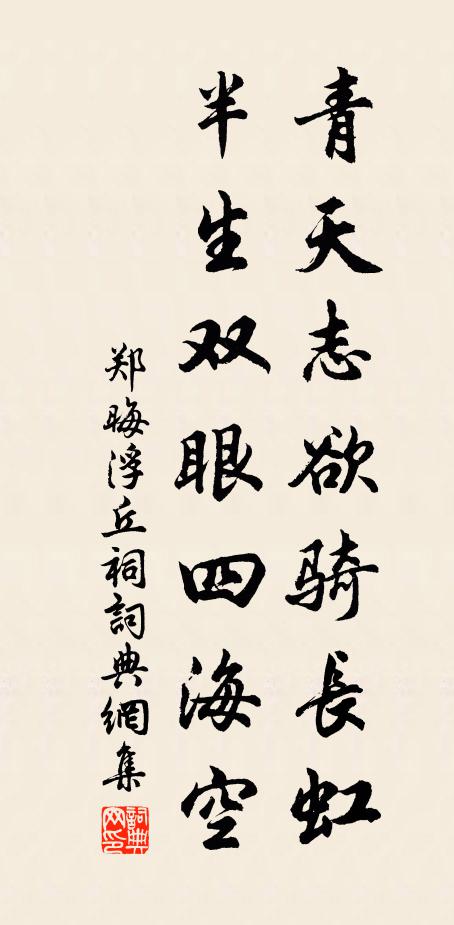 青天志欲骑長虹
半生双眼四海空
郑晦浮丘祠詞典網集
詞典網印